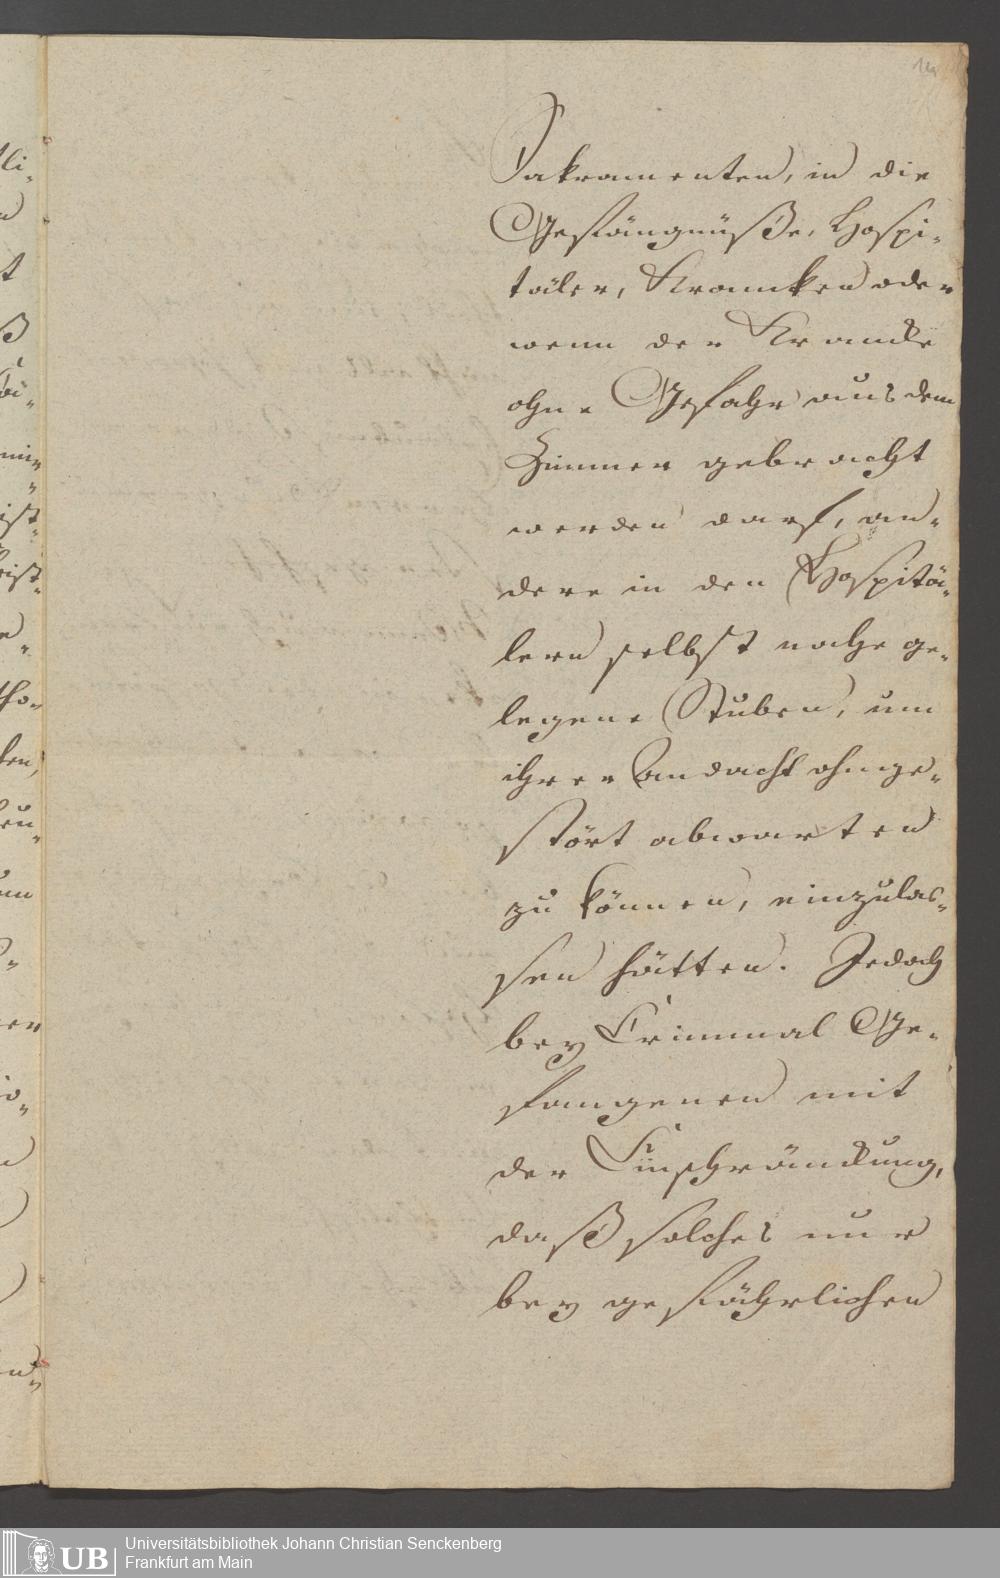 14
Sakramenten, in die
Gefängnüße, Hospi-
täler, Krancken oder
wenn der Krancke
ohne Gefahr aus dem
Zimmer gebracht
werden darf, an-
dere in den Hospitä-
lern selbst nahe ge-
legene Stuben, um
ihrer Andacht ohnge-
stört abwarten
zu können, einzulas-
sen hätten. Jedoch
bey Criminal Ge-
fangenen mit
der Einschränckung,
daß solches nur
bey gefährlichen
UB
Universitätsbibliothek Johann Christian Senckenberg
Frankfurt am Main